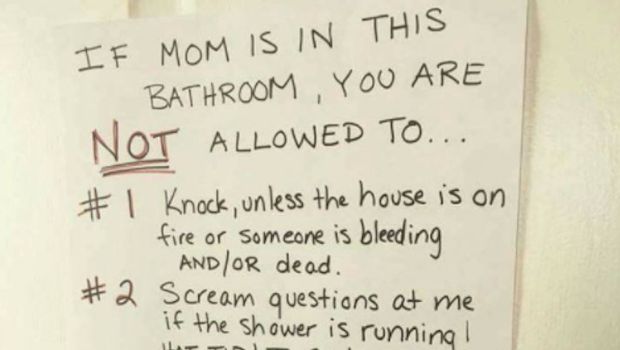 IF MOM IS IN THIS
BATHROOM, YOU ARE
NOT ALLOWED TO...
#1 Knock, unless the house is on
fire or someone is bleeding
AND/OR dead.
#2 Scream questions at me
if the shower is running I